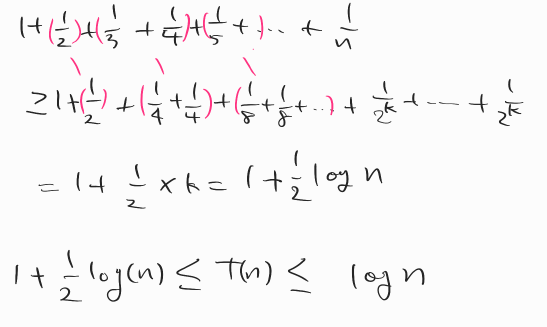 1+(1/2)+(1/3 + 1/4)+(1/5 + )... + 1/n
≥ 1+(1/2) + (1/4 + 1/4)+(1/8 + 1/8 + ..) + 1/2^k + --- + 1/2^k
= 1 + 1/2 × k = 1 + 1/2 log n
1 + 1/2 log(n) ≤ T(n) ≤ log n